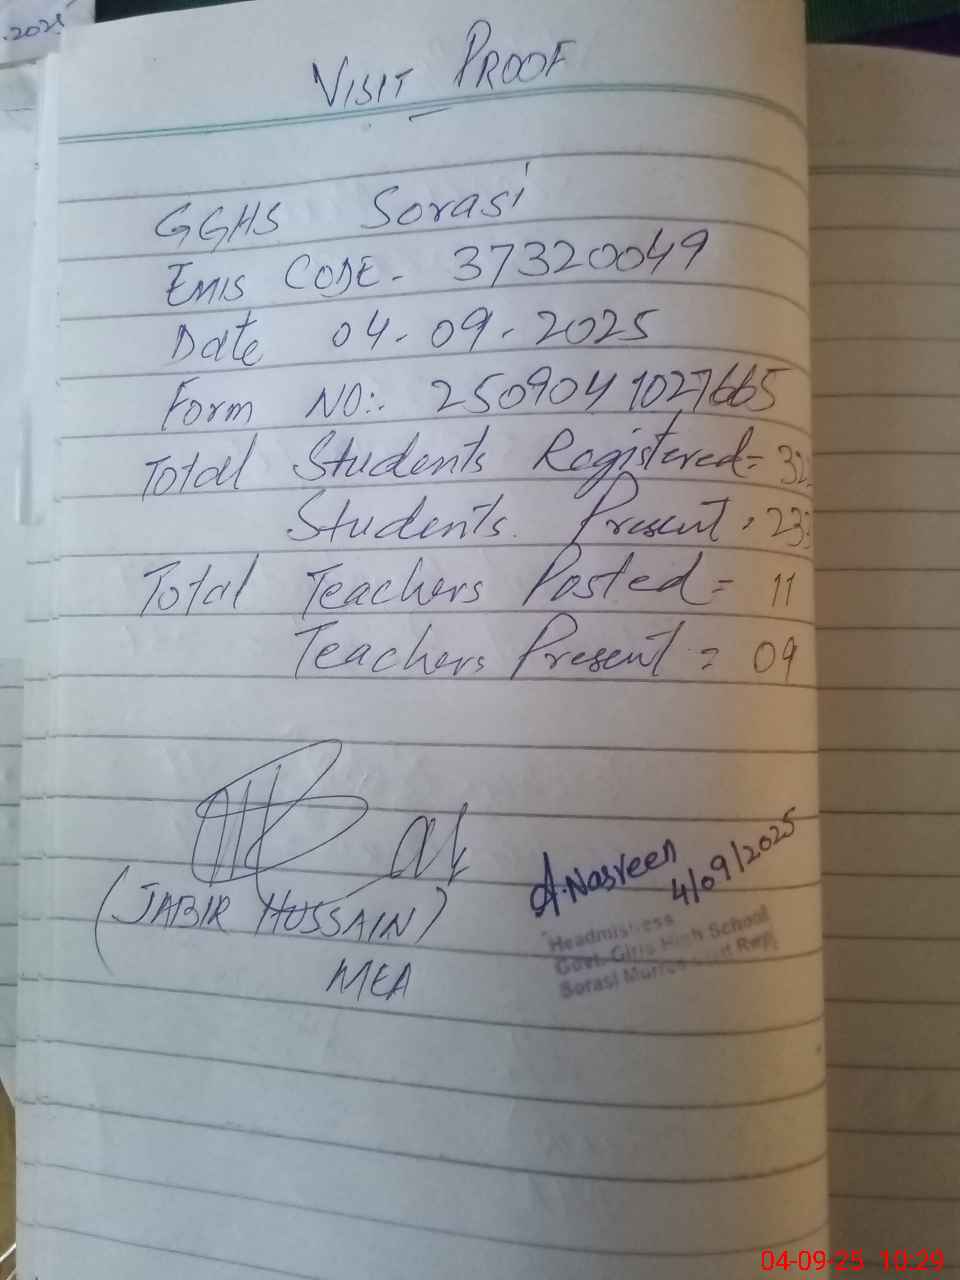 .2025
VISIT PROOF
GGHS Sorasi
EMIS CODE- 37320049
Date 04-09-2025
Form NO:- 2509041027665
Total Students Registered=
Students. Present =
Total Teachers Posted = 11
Teachers Present = 09
A.Nasreen
4/09/2025
(JABIR HUSSAIN)
MEA
Headmistress
Govt. Girls High School
Sorasi Murree Rwp
04-09-25 10:29